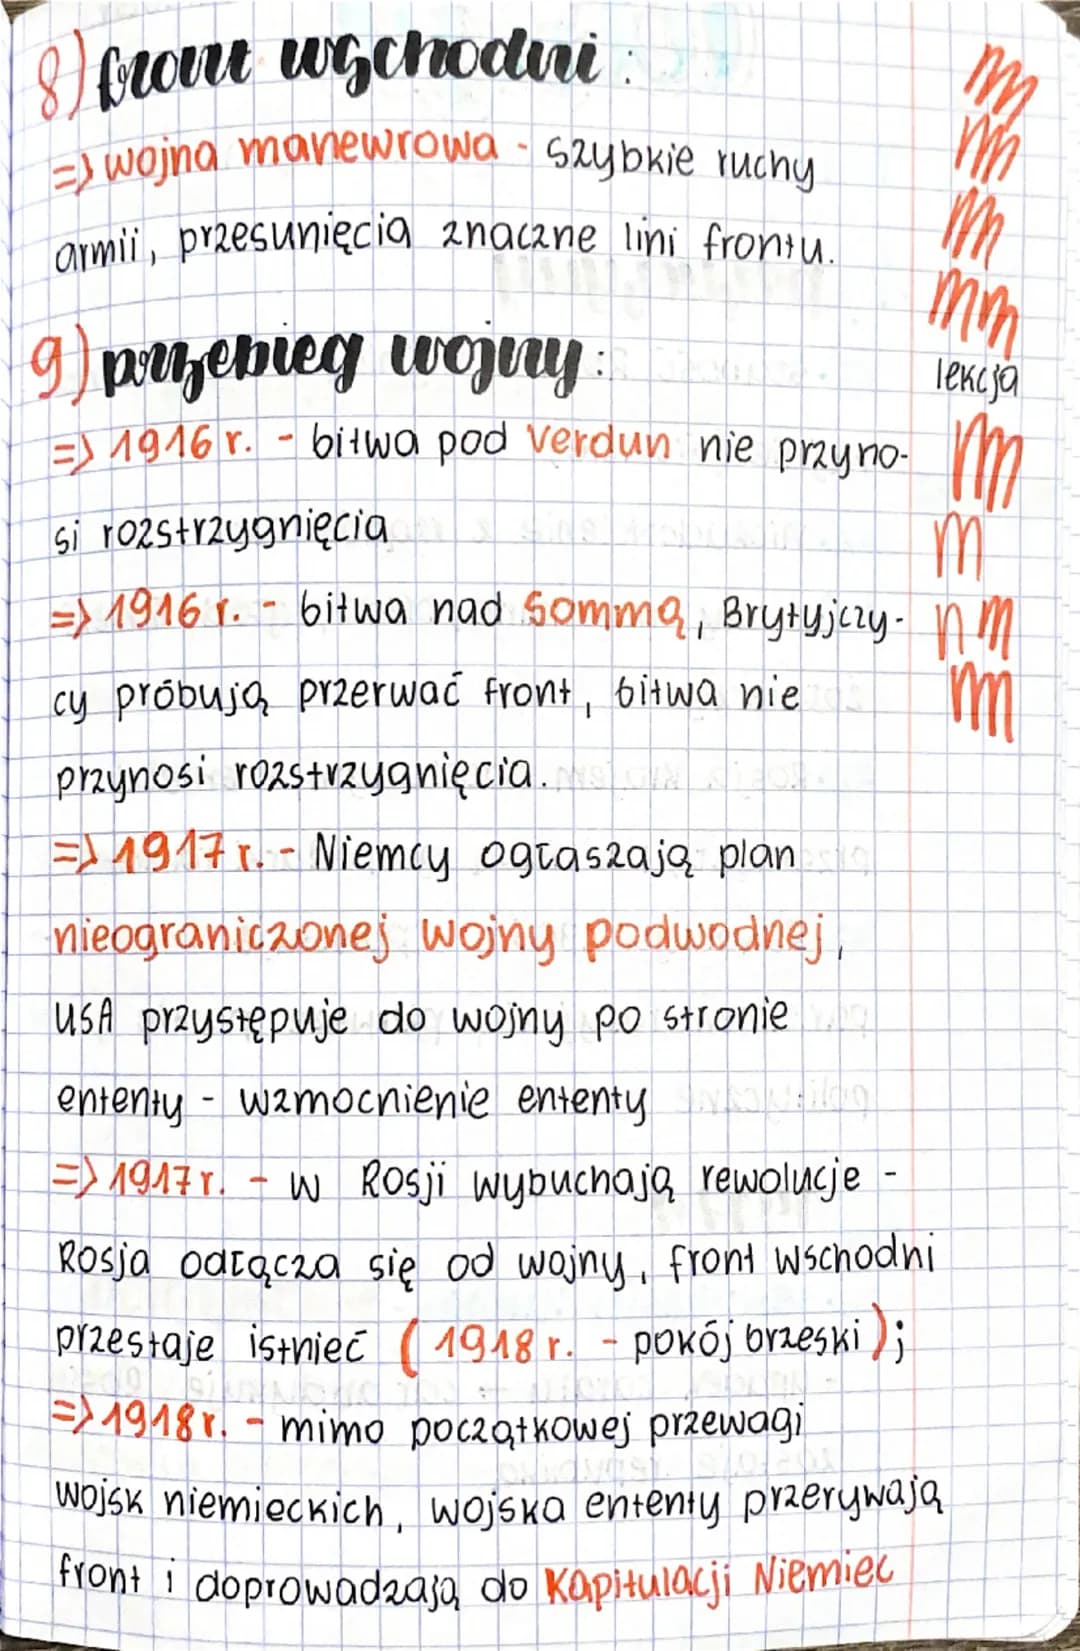 8) front wschodni :
=> wojna manewrowa - szybkie ruchy
armii, przesunięcia znaczne lini frontu.
9) przebieg wojny :
lekcja
=> 1916 r. - bitwa pod Verdun nie przyno-
si rozstrzygnięcia
=> 1916 r. - bitwa nad Sommą, Brytyjczy-
cy próbują przerwać front, bitwa nie
przynosi rozstrzygnięcia.
=> 1917 r. - Niemcy ogłaszają plan
nieograniczonej wojny podwodnej,
USA przystępuje do wojny po stronie
ententy - wzmocnienie ententy
=> 1917 r. - w Rosji wybuchają rewolucje -
Rosja odłącza się od wojny, front wschodni
przestaje istnieć (1918 r. - pokój brzeski);
=> 1918 r. - mimo początkowej przewagi
wojsk niemieckich, wojska ententy przerywają
front i doprowadzają do kapitulacji Niemiec